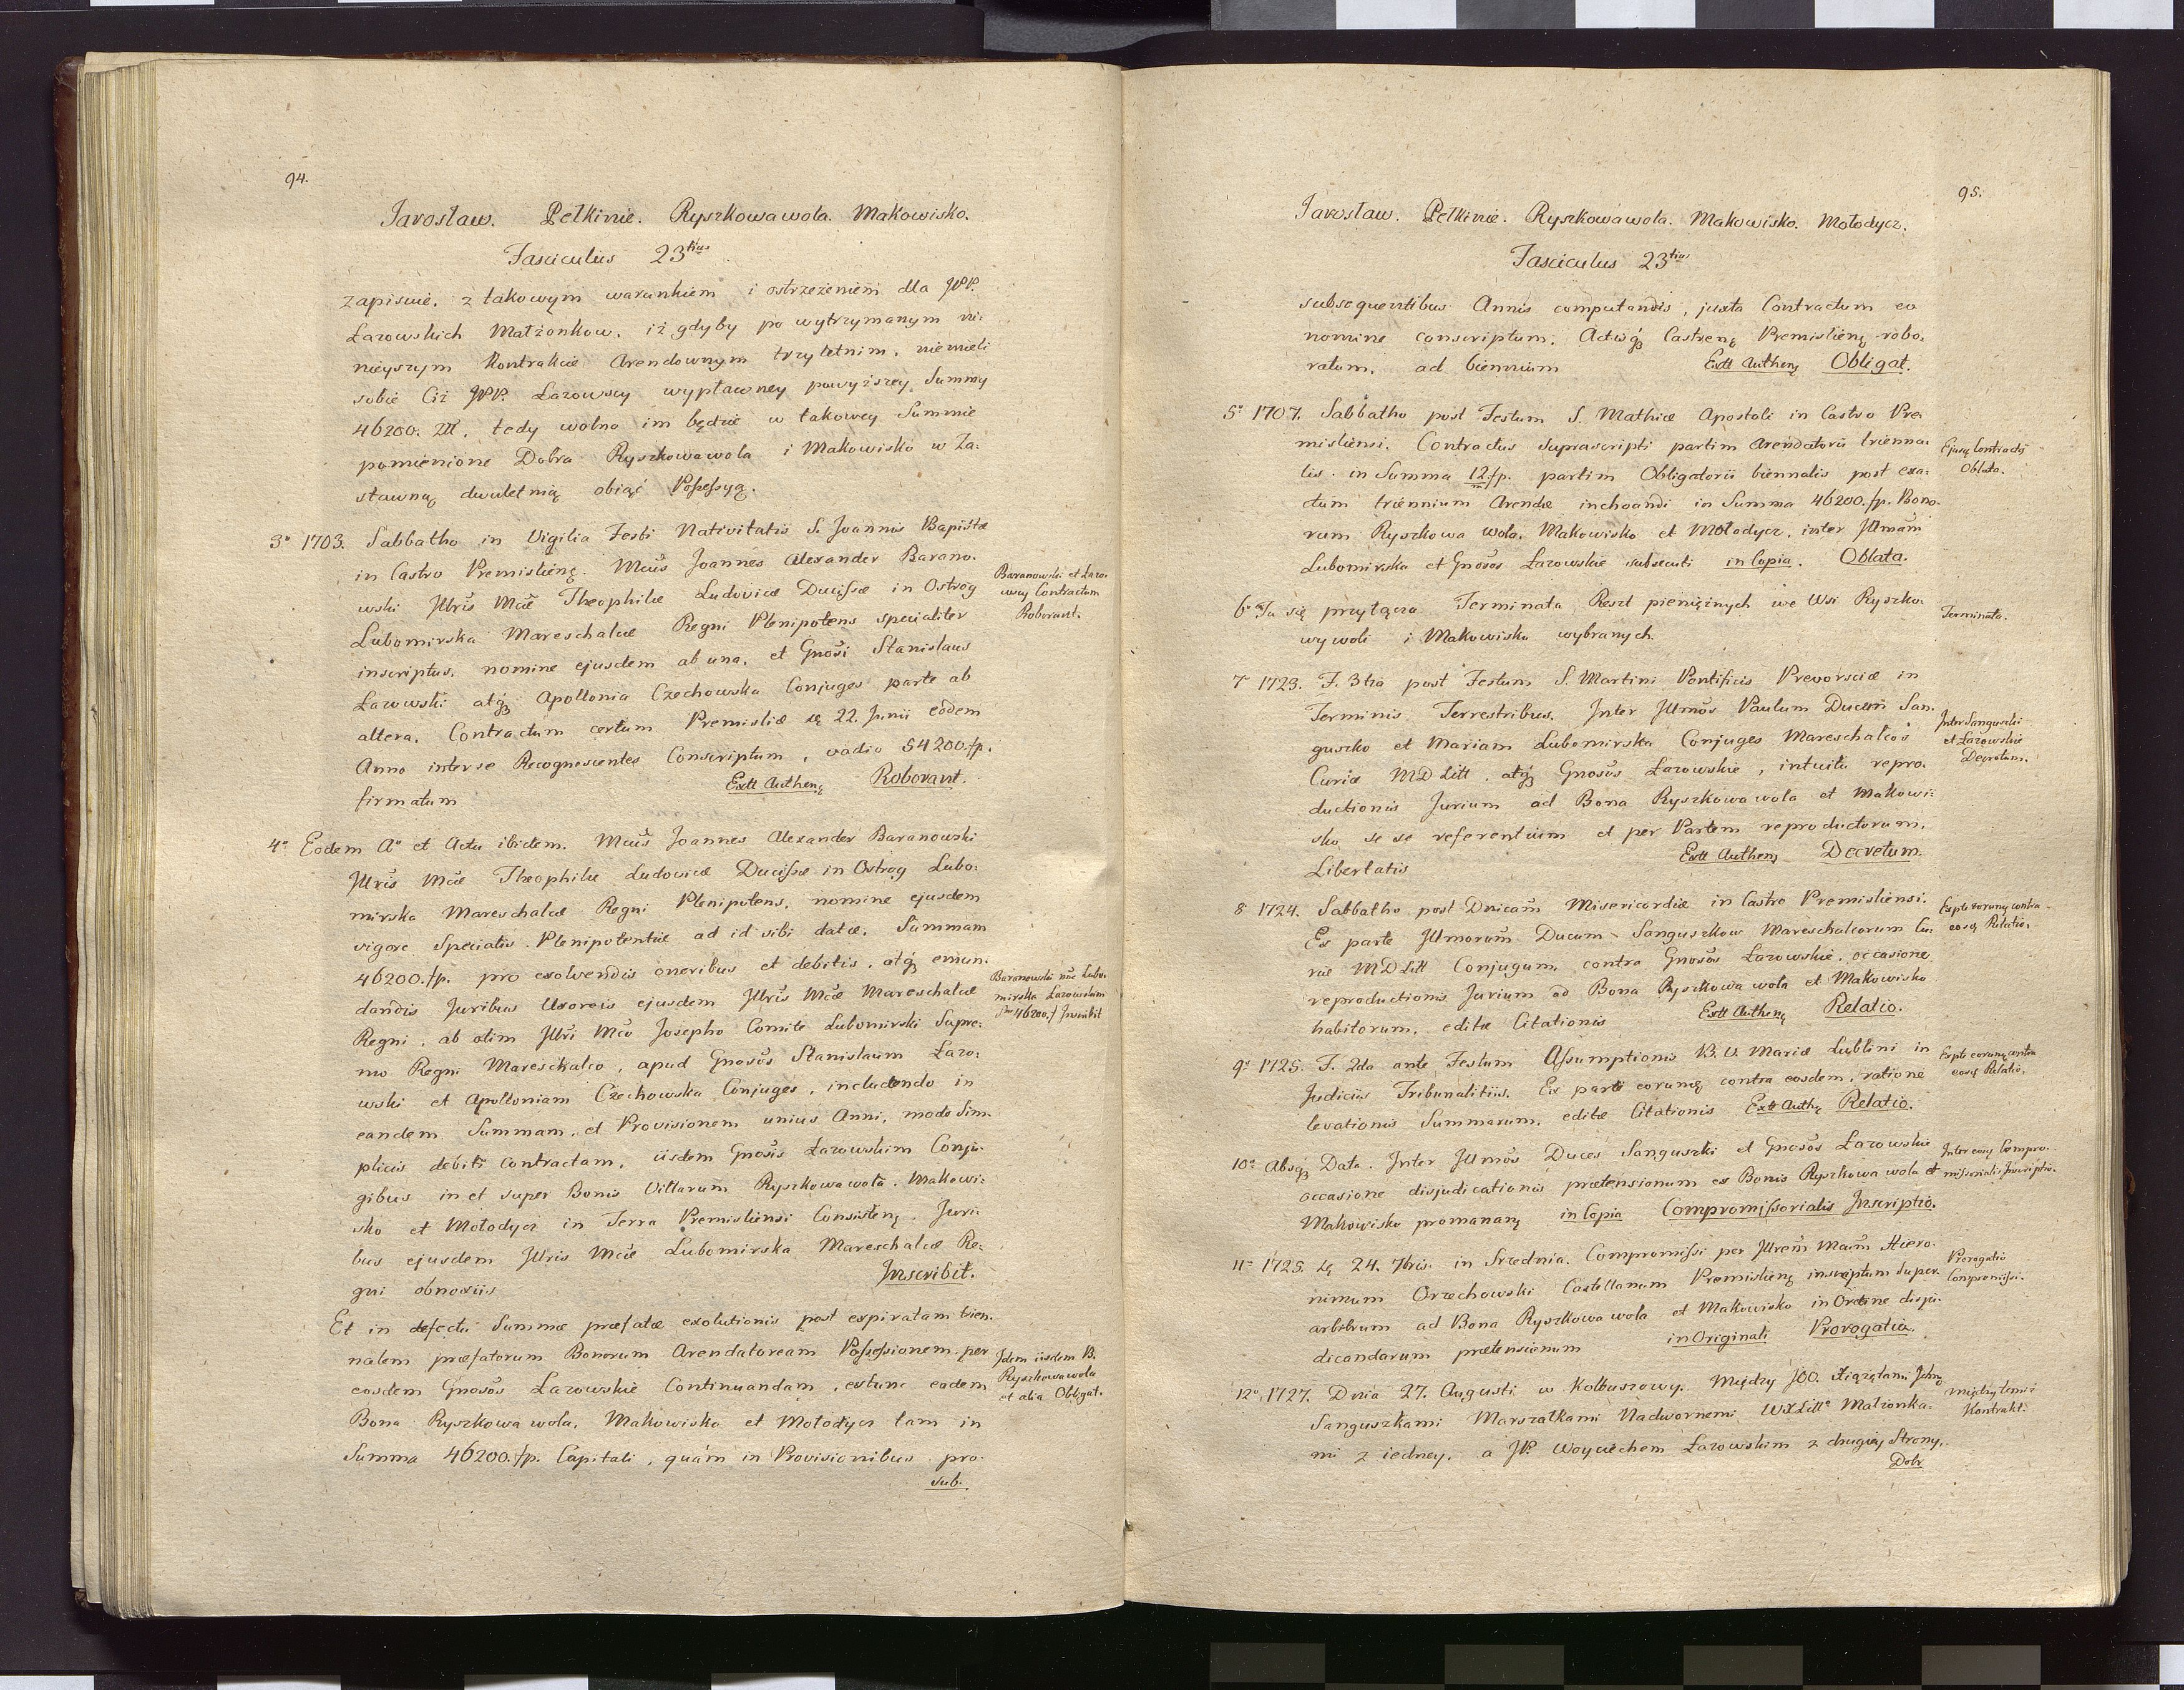 94.
Jarosław. Pełkinie. Ryszkowawola. Makowisko.
Fasciculus 23tius
zapisuie, z takowym warunkiem i ostrzeżeniem dla JPP.
Łazowskich Małżonkow, iż gdyby po wytrzymanym ni:
nieyszym Kontrakcie Arendownym trzyletnim, niemieli
sobie Ciż JPP. Łazowscy wypławney powyższey Summy
46200. Złł, tedy wolno im będzie w takowey Summie
pomienione Dobra Ryszkowawola i Makowisko w Za:
stawną dwuletnią obiąć Possessyą.
3° 1703. Sabbatho in Vigilia Festi Nativitatis S. Joannis Bapistæ
in Castro Premislieng. Mcus Joannes Alexander Barano.
wski Jllris Mcæ Theophilæ Ludovicæ Ducissæ in Ostrog
Lubomirska Mareschalcæ Regni Plenipotens specialiter
inscriptus, nomine ejusdem ab una, et Gnosi Stanislaus
Łazowski atq Apollonia Czechowska Conjuges parte ab
altera, Contractum certum Premisliæ 22. Junii eodem
Anno inter se Recognoscentes Conscriptum, vadio 54200.fp.
firmatum ExttAutheng Roborant.
Baranowski et Łazo:
wscy Contractum
Roborant.
4° Eodem A° et Actu ibidem. Mcus Joannes Alexander Baranowski
Jllris Mcæ Theophilæ Ludovicæ Ducissæ in Ostrog Lubo:
mirska Mareschalcæ Regni Plenipotens, nomine ejusdem
vigore Specialis Plenipotentiæ ad id sibi datæ, Summam
46200.fp. pro exolvendis oneribus et debitis, atq emun:
dandis Juribus Uxoreis ejusdem Jllris Mcæ Mareschalcæ
Regni, ab olim Jllri Mco Josepho Comite Lubomirski Supre:
mo Regni Mareschalco, apud Gnosos Stanislaum Łazo:
wski et Apolloniam Czechowska Conjuges, includendo in
eandem Summam, et Provisionem unius Anni, modo Sim:
plicis debiti contractam, iisdem Gnosis Łazowskim Conju:
gibus in et super Bonis Villarum Ryszkowawola, Makowi:
sko et Mołodycz in Terra Premisliensi Consisteng Juri:
bus ejusdem Jllris Mcæ Lubomirska Mareschalcæ Re:
gni obnoxiis Jnscribit.
Baranowski nie Lubo:
mirska Łazowskim
Sm 46200.f Jnscribit
Et in defectu Summæ præfatæ exolutionis post expiratam trien:
nalem præfatorum Bonorum Arendatoream Possessionem per
eosdem Gnosos Łazowskie Continuandam, extunc eadem
Bona Ryszkowa wola, Makowisko et Mołodycz tam in
Summa 46200.fp. Capitali, quám in Provisionibus pro
sub.
Jdem iisdem B.
Ryszkowawola
et alia Obligat.
95.
Jarosław. Pełkinie. Ryszkowawola. Makowisko. Mołodycz.
Fasciculus 23tius
subsequentibus Annis computandis, juxta Contractum eo
nomine conscriptum, Actisq Castreng Premislieng robo:
ratum, ad biennium Extt Autheng Obligat.
5° 1707. Sabbatho post Festum S. Mathiæ Apostoli in Castro Pre:
misliensi. Contractus Suprascripti partim Arendatorii trienna:
lis in Summa 12.fp. partim Obligatorii biennalis post exa:
ctum triennium Arendæ inchoandi in Summa 46200.fp. Bono:
rum Ryszkowa wola, Makowisko et Mołodycz, inter Jllmam
Lubomirska et Gnosos Łazowskie subsecuti in Copia. Oblata.
Ejusq Contracts
Oblata.
6° Tu się przyłącza Terminata Reszt pieniężnych we Wsi Ryszko:
wywoli i Makowisko wybranych.
Terminata.
7° 1723. F. 3tia post Festum S. Martini Pontificis Preworsciæ in
Terminis Terrestribus. Jnter Jllmos Paulum Ducem San:
guszko et Mariam Lubomirska Conjuges Mareschalcos
Curiæ MD Litt. atq Gnosos Łazowskie, intuitu repro:
ductionis Jurium ad Bona Ryszkowawola et Makowi:
sko se se referentium et per Partem reproductorum,
Libertatis Extt Autheng Decretum.
Jnter Sanguszki
et Łazowskie
Decretum.
8 1724. Sabbatho post Dnicam Misericordiæ in Castro Premisliensi.
Ex parte Jllmorum Ducum Sanguszkow Mareschalcorum Cu:
riæ MD Litt Conjugum, contra Gnosos Łazowskie, occasione
reproductionis Jurium ad Bona Ryszkowa wola et Makowisko
habitorum, editæ Citationis Extt Autheng Relatio.
Expte eorumq contra
eosq Relatio.
9° 1725. F. 2da ante Festum Assumptionis B. V. Mariæ Lublini in
Judiciis Tribunalitiis. Ex parte eorumq contra eosdem, ratione
levationis Summarum, editæ Citationis Extt Authg Relatio.
Expte eorumq contra
eosq Relatio.
10° Absq Data. Jnter Jllmos Duces Sanguszki et Gnosos Łazowskie
occasione disjudicationis prætensionum ex Bonis Ryszkowa wola et
Makowisko promanang in Copia Compromissorialis Jnscriptio.
Jnter eosq Compro:
missorialis Jnscriptio.
11° 1725. 24. 7bris in Srzednia. Compromissi per Jllrem Mcum Hiero:
nimum Orzechowski Castellanum Premislieng inscriptum super
arbitrum ad Bona Ryszkowa wola et Makowisko in Ordine disju:
dicandarum prætensionum in Originali Prorogatia.
Prorogatio
Compromissi.
12° 1727. Dnia 27. Augusti w Kolbuszowy. Między JOO. Xiążętami Jchmq
Sanguszkami Marszałkami Nadwornemi WXLitt° Małżonka:
mi z iedney, a JP. Woyciechem Łazowskim z drugiey Strony,
Dobr
między temiż
Kontrakt.